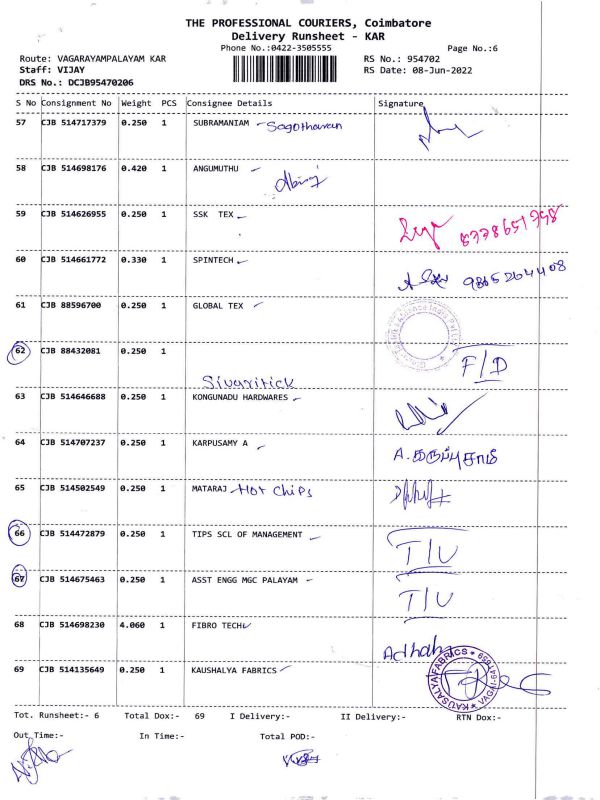 THE PROFESSIONAL COURIERS, Coimbatore
Delivery Runsheet - KAR
Phone No.:0422-3505555 Page No.:6
Route: VAGARAYAMPALAYAM KAR RS No.: 954702
Staff: VIJAY RS Date: 08-Jun-2022
DRS No.: DCJB95470206
S No Consignment No Weight PCS Consignee Details Signature
57 CJB 514717379 0.250 1 SUBRAMANIAM
58 CJB 514698176 0.420 1 ANGUMUTHU
59 CJB 514626955 0.250 1 SSK TEX
60 CJB 514661772 0.330 1 SPINTECH 9865264408
61 CJB 88596700 0.250 1 GLOBAL TEX
62 CJB 88432081 0.250 1 F/D
63 CJB 514646688 0.250 1 KONGUNADU HARDWARES
64 CJB 514707237 0.250 1 KARPUSAMY A A. கருப்புசாமி
65 CJB 514502549 0.250 1 MATARAJ Hot Chips
66 CJB 514472879 0.250 1 TIPS SCL OF MANAGEMENT T/U
67 CJB 514675463 0.250 1 ASST ENGG MGC PALAYAM T/U
68 CJB 514698230 4.060 1 FIBRO TECH
69 CJB 514135649 0.250 1 KAUSHALYA FABRICS KAUSALYA FABRICS
Tot. Runsheet:- 6 Total Dox:- 69 I Delivery:- II Delivery:- RTN Dox:-
Out Time:- In Time:- Total POD:-